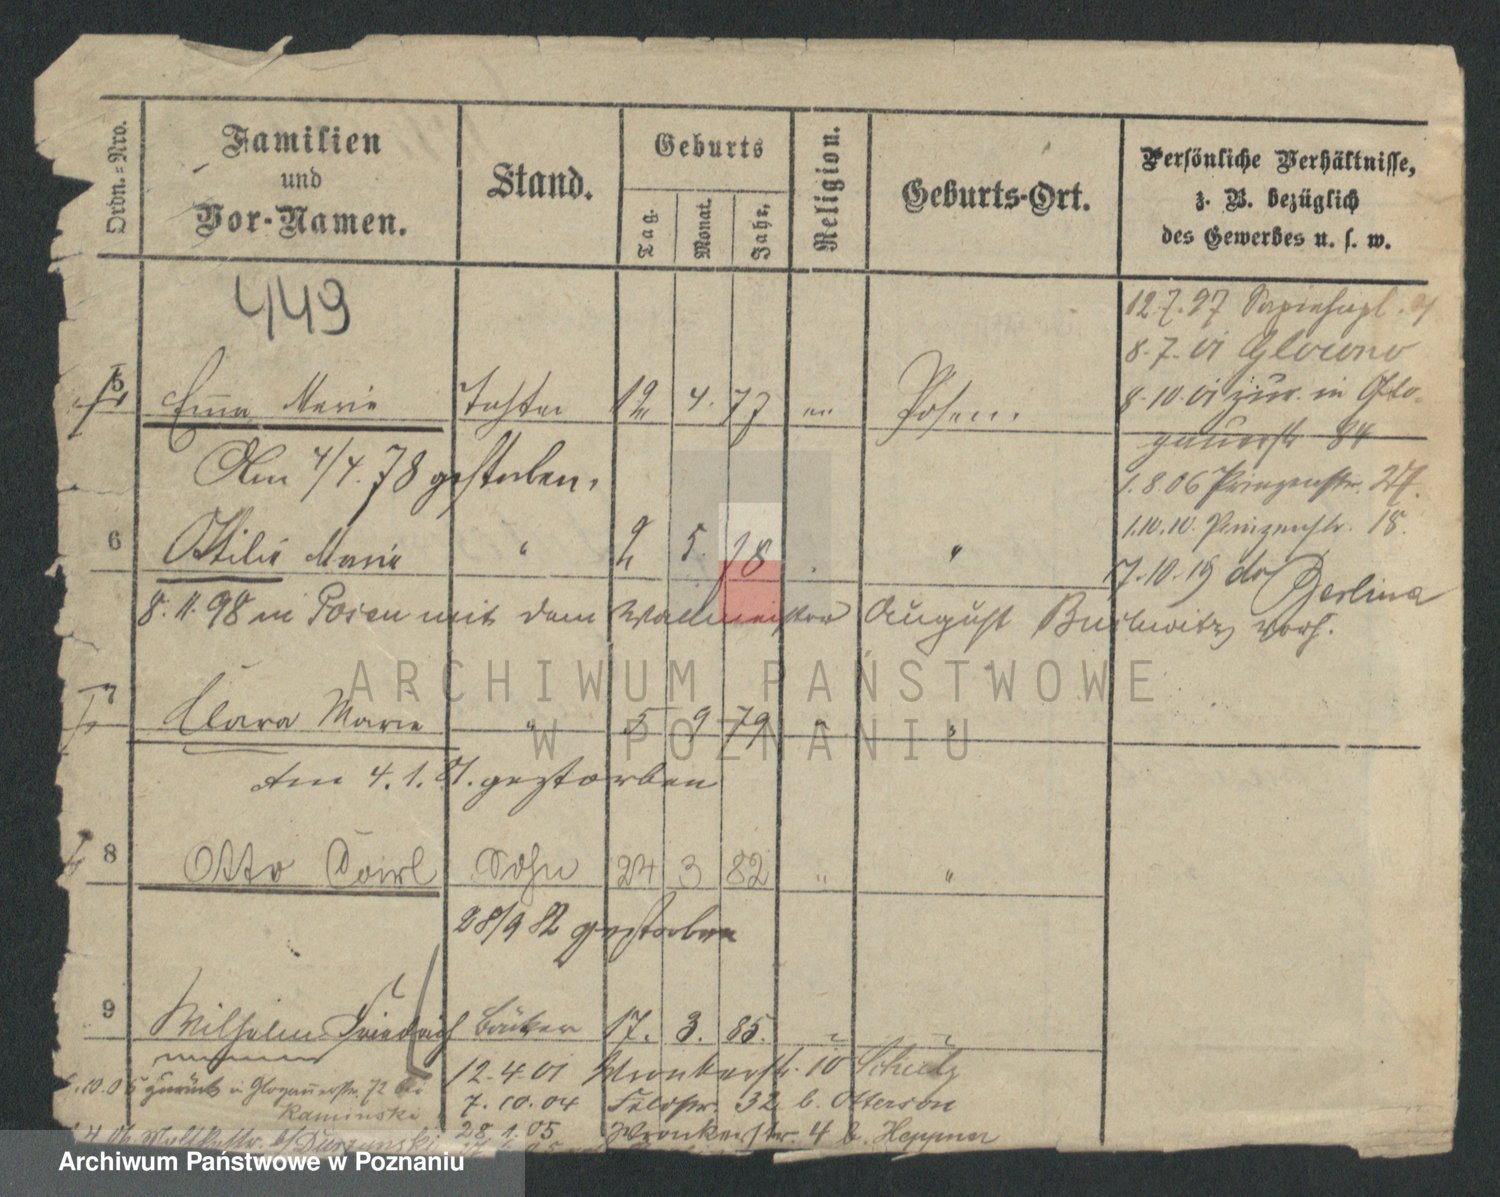 Ordn.=Nro.
Familien
und
Vor-Namen.
Stand.
Geburts
Tag.
Monat.
Jahr.
Religion.
Geburts-Ort.
Persönliche Verhältnisse,
z. B. bezüglich
des Gewerbes u. s. w.
449
12.7.97
8.7.01 Glowno
5 Emma Marie Tochter 12 4. 77 Posen.
8.10.01 zur. in Glo-
gauerstr 84
Am 4/4.78 gestorben.
1.8.06 Prinzenstr. 27.
1.10.10. Prinzenstr. 18.
6 Ottilie Marie " 2 5. 78 "
7.10.19 Berlina
8.11.98 in Posen mit dem Wallmeister August verh.
7 Clara Marie " 5 9 79 " "
Am 4.1.81. gestorben
8 Otto Sohn 24 3 82 " "
28/9 82 gestorben
9 Wilhelm Friedrich Bäcker 17. 3. 85. " "
12.4.01 Wronkerstr. 10 Schulz
zurück Glogauerstr. 72 bei
Kaminski
7.10.04 32 b. Otterson
28.1.05 Wronkerstr. 4 b. Heppner
ARCHIWUM PAŃSTWOWE
W POZNANIU
Archiwum Państwowe w Poznaniu